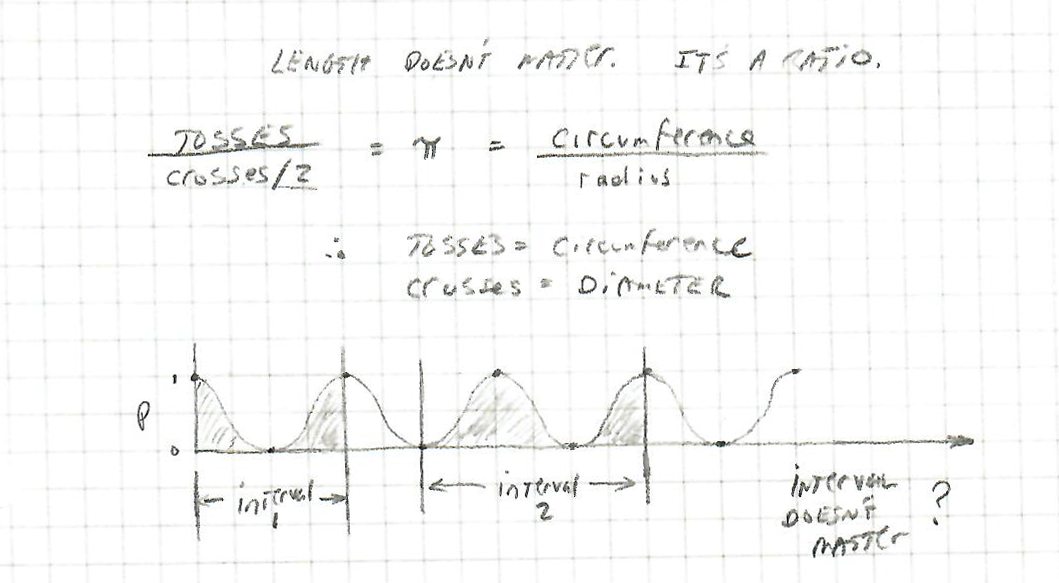 LENGTH DOESN'T MATTER. ITS A RATIO.
TOSSES / crosses/2 = π = circumference / radius
∴ TOSSES = circumference
crosses = DIAMETER
1
P
0
interval 1
interval 2
INTERVAL
DOESN'T
MATTER ?